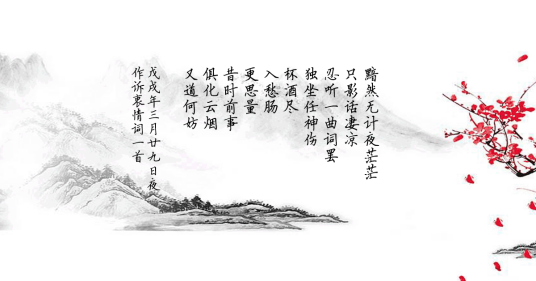 黯然无计夜茫茫
只影话凄凉
忍听一曲词罢
独坐任神伤
杯酒尽
入愁肠
更思量
昔时前事
俱化云烟
又道何妨
戊戌年三月廿九日夜
作诉衷情词一首